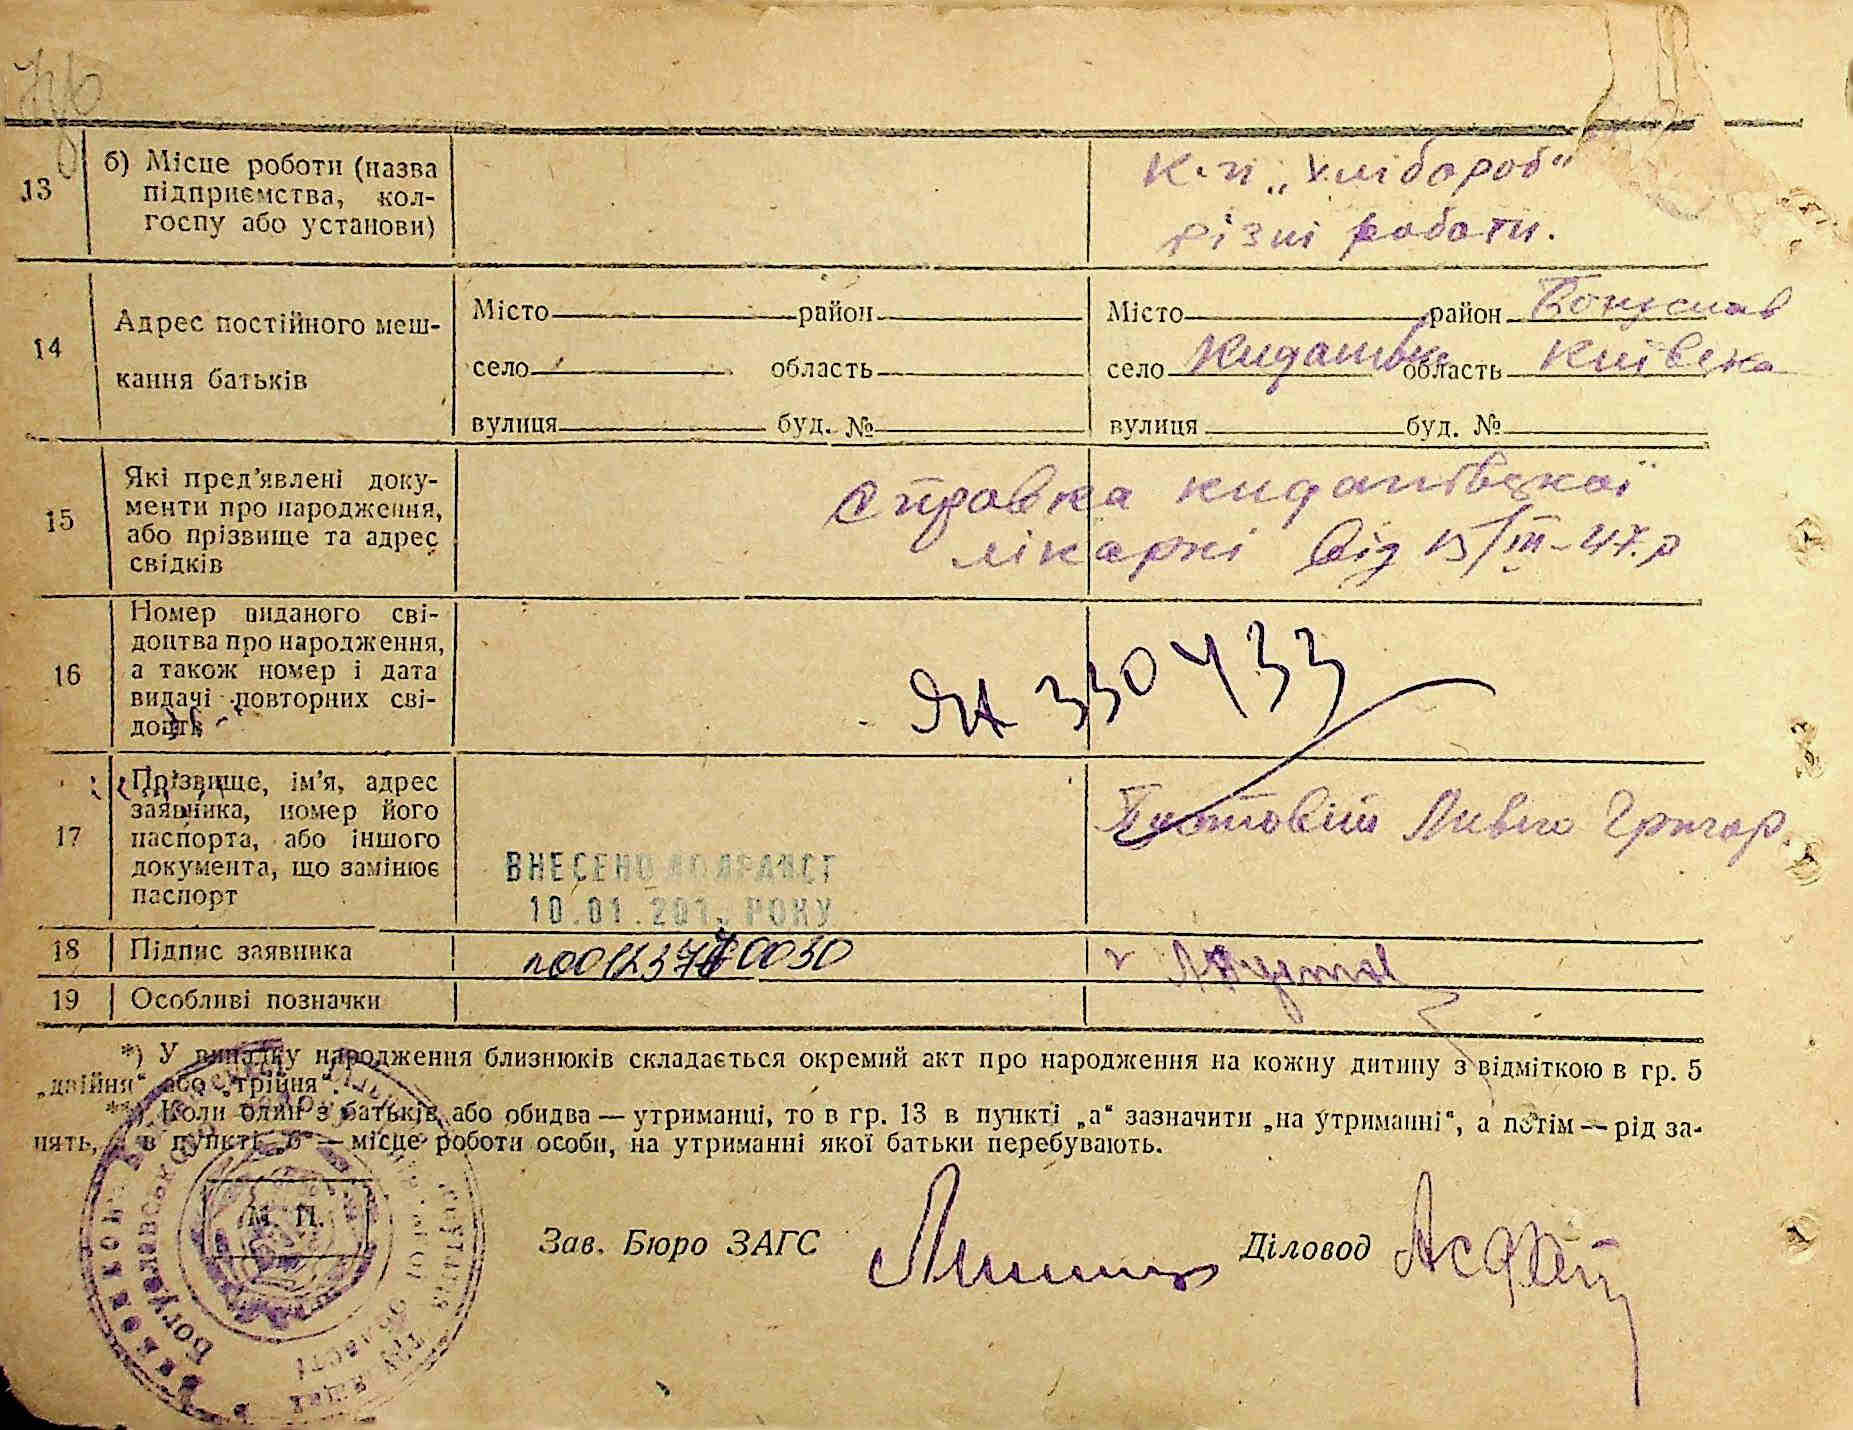 13
б) Місце роботи (назва
підприємства, кол-
госпу або установи)
к-п „Хлібороб"
різні роботи.
14
Адрес постійного меш-
кання батьків
Місто район
село область
вулиця буд. №
Місто район Богуслав
село область Київська
вулиця буд. №
15
Які пред'явлені доку-
менти про народження,
або прізвище та адрес
свідків
Справка кидановецкої
лікарні від 15/III-47.р
16
Номер виданого сві-
доцтва про народження,
а також номер і дата
видачі повторних сві-
доцтв
ЯА 330433
17
Прізвище, ім'я, адрес
заявника, номер його
паспорта, або іншого
документа, що замінює
паспорт
Пустовіт Григор.
ВНЕСЕНО ДО ДРАЦСГ
10.01.201 РОКУ
18
Підпис заявника
19
Особливі позначки
*) У випадку народження близнюків складається окремий акт про народження на кожну дитину з відміткою в гр. 5
„двійня" або „трійня".
**) Коли один з батьків або обидва — утриманці, то в гр. 13 в пункті „а" зазначити „на утриманні", а потім — рід за-
нять, а в пункті „б" — місце роботи особи, на утриманні якої батьки перебувають.
М. П.
Зав. Бюро ЗАГС
Діловод